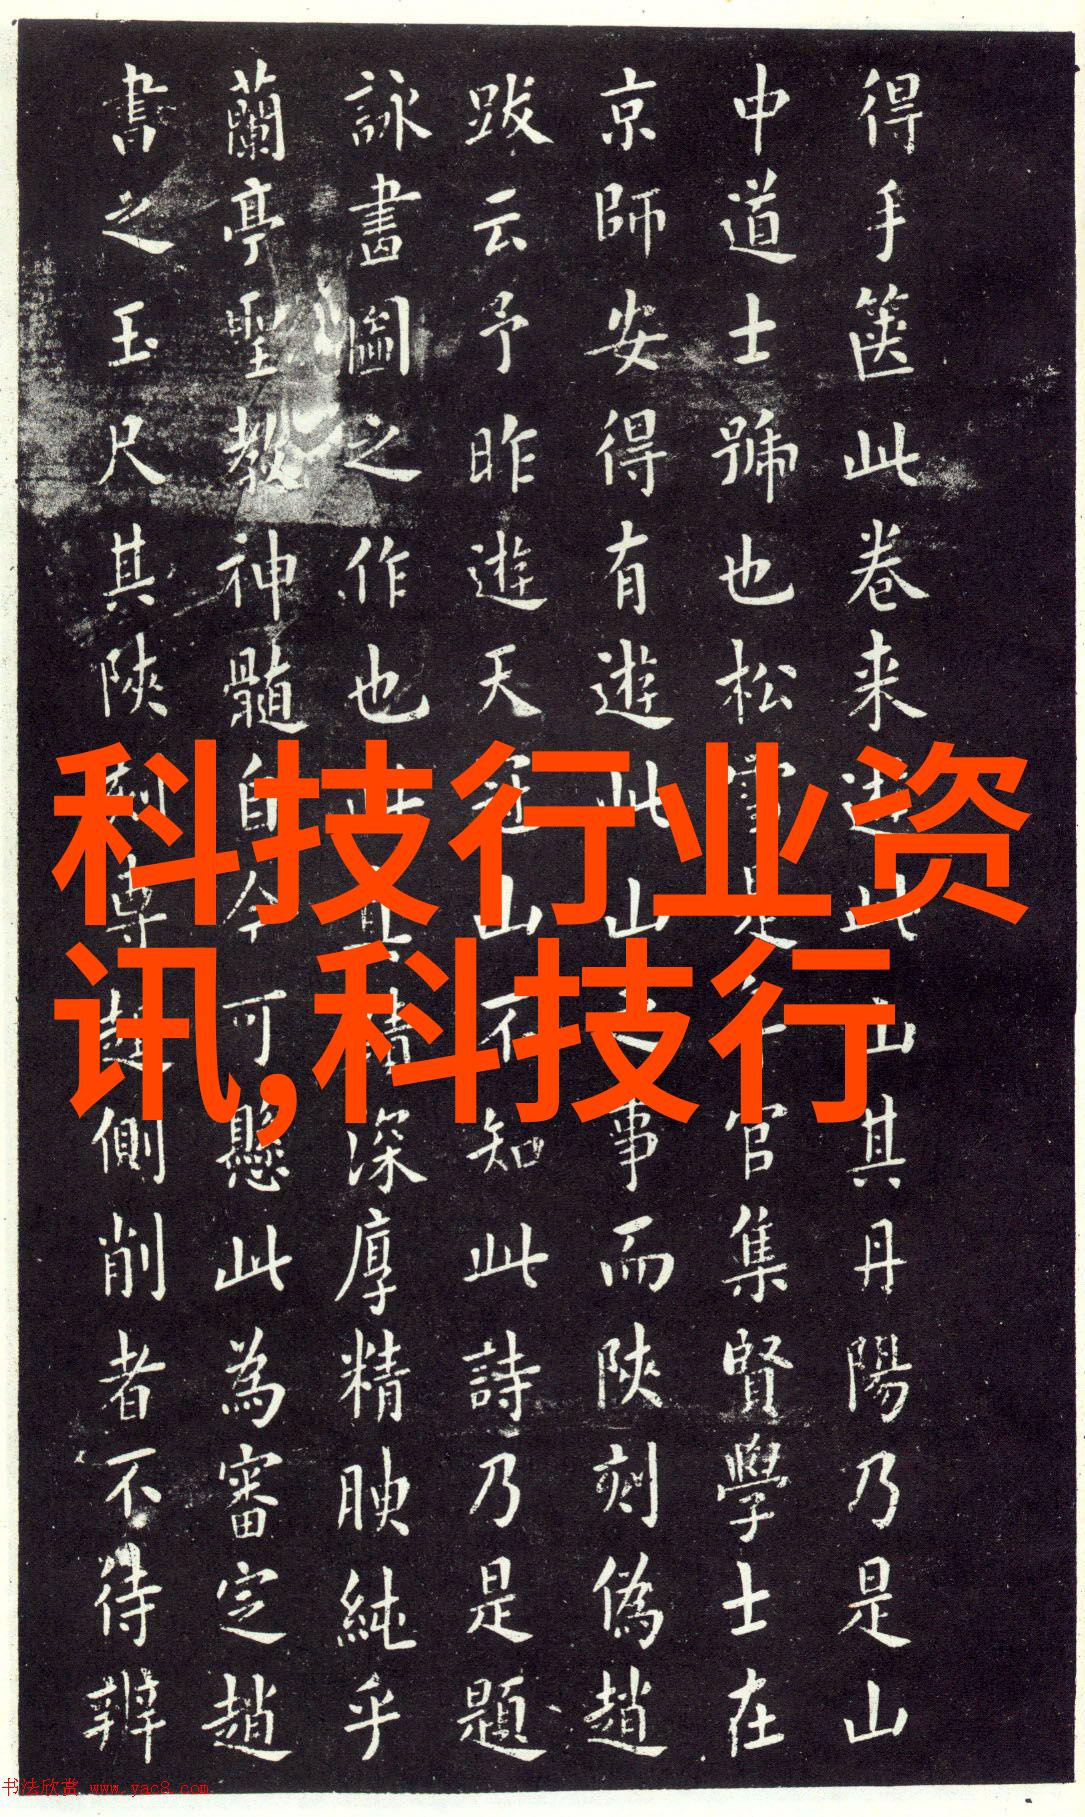 得手篋此卷来此山其丹陽乃是山
中道士號也松雪是年官集賢學士在
京師安得有遊此山之事而陝刻偽趙
跋云予昨遊天冠山不知此詩乃是題
詠畫圖之作也此精深厚精腴純乎
蘭亭聖教神髓自今可懸此為審定趙
書之玉尺其陝刻專趨側削者不待辨
科技行业资
讯,科技行
书法欣赏 www.yac8.com